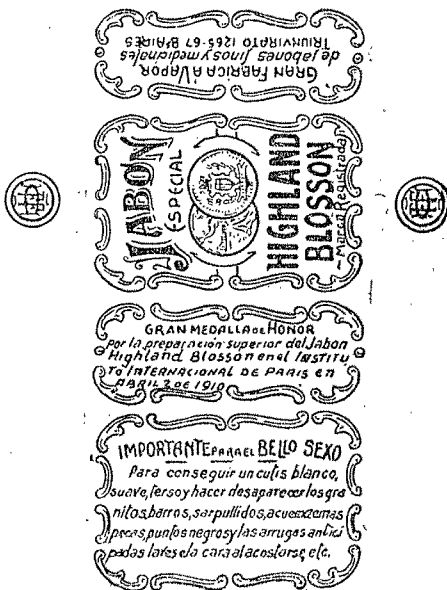 GRAN FABRICA A VAPOR
de jabones finos y medicinales
TRIUNVIRATO 1265-67 Bs AIRES
JABON
ESPECIAL
HIGHLAND
BLOSSON
Marca Registrada
GRAN MEDALLA DE HONOR
por la preparación superior del Jabon
Highland Blosson en el INSTITU
TO INTERNACIONAL DE PARIS en
ABRIL 2 de 1910
IMPORTANTE PARA EL BELLO SEXO
Para conseguir un cutis blanco,
suave, terso y hacer desaparecer los gra
nitos, barros, sarpullidos,
pecas, puntos negros y las arrugas antici
padas la cara al acostarse, etc.